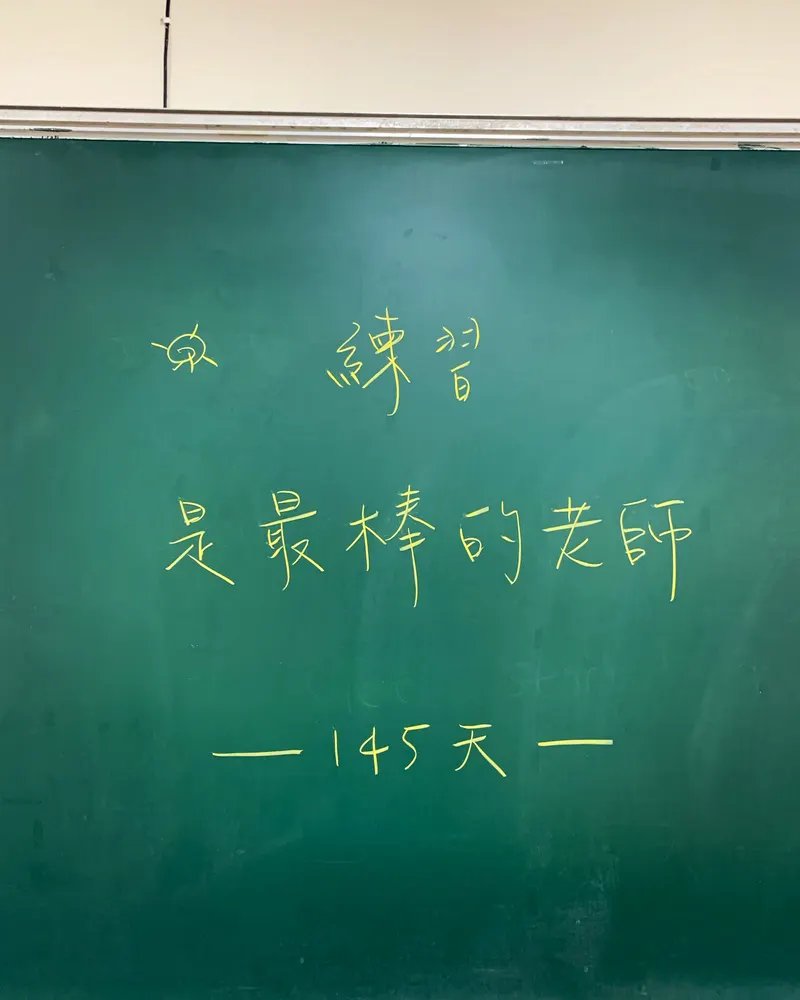 練習
是最棒的老師
— 145天 —